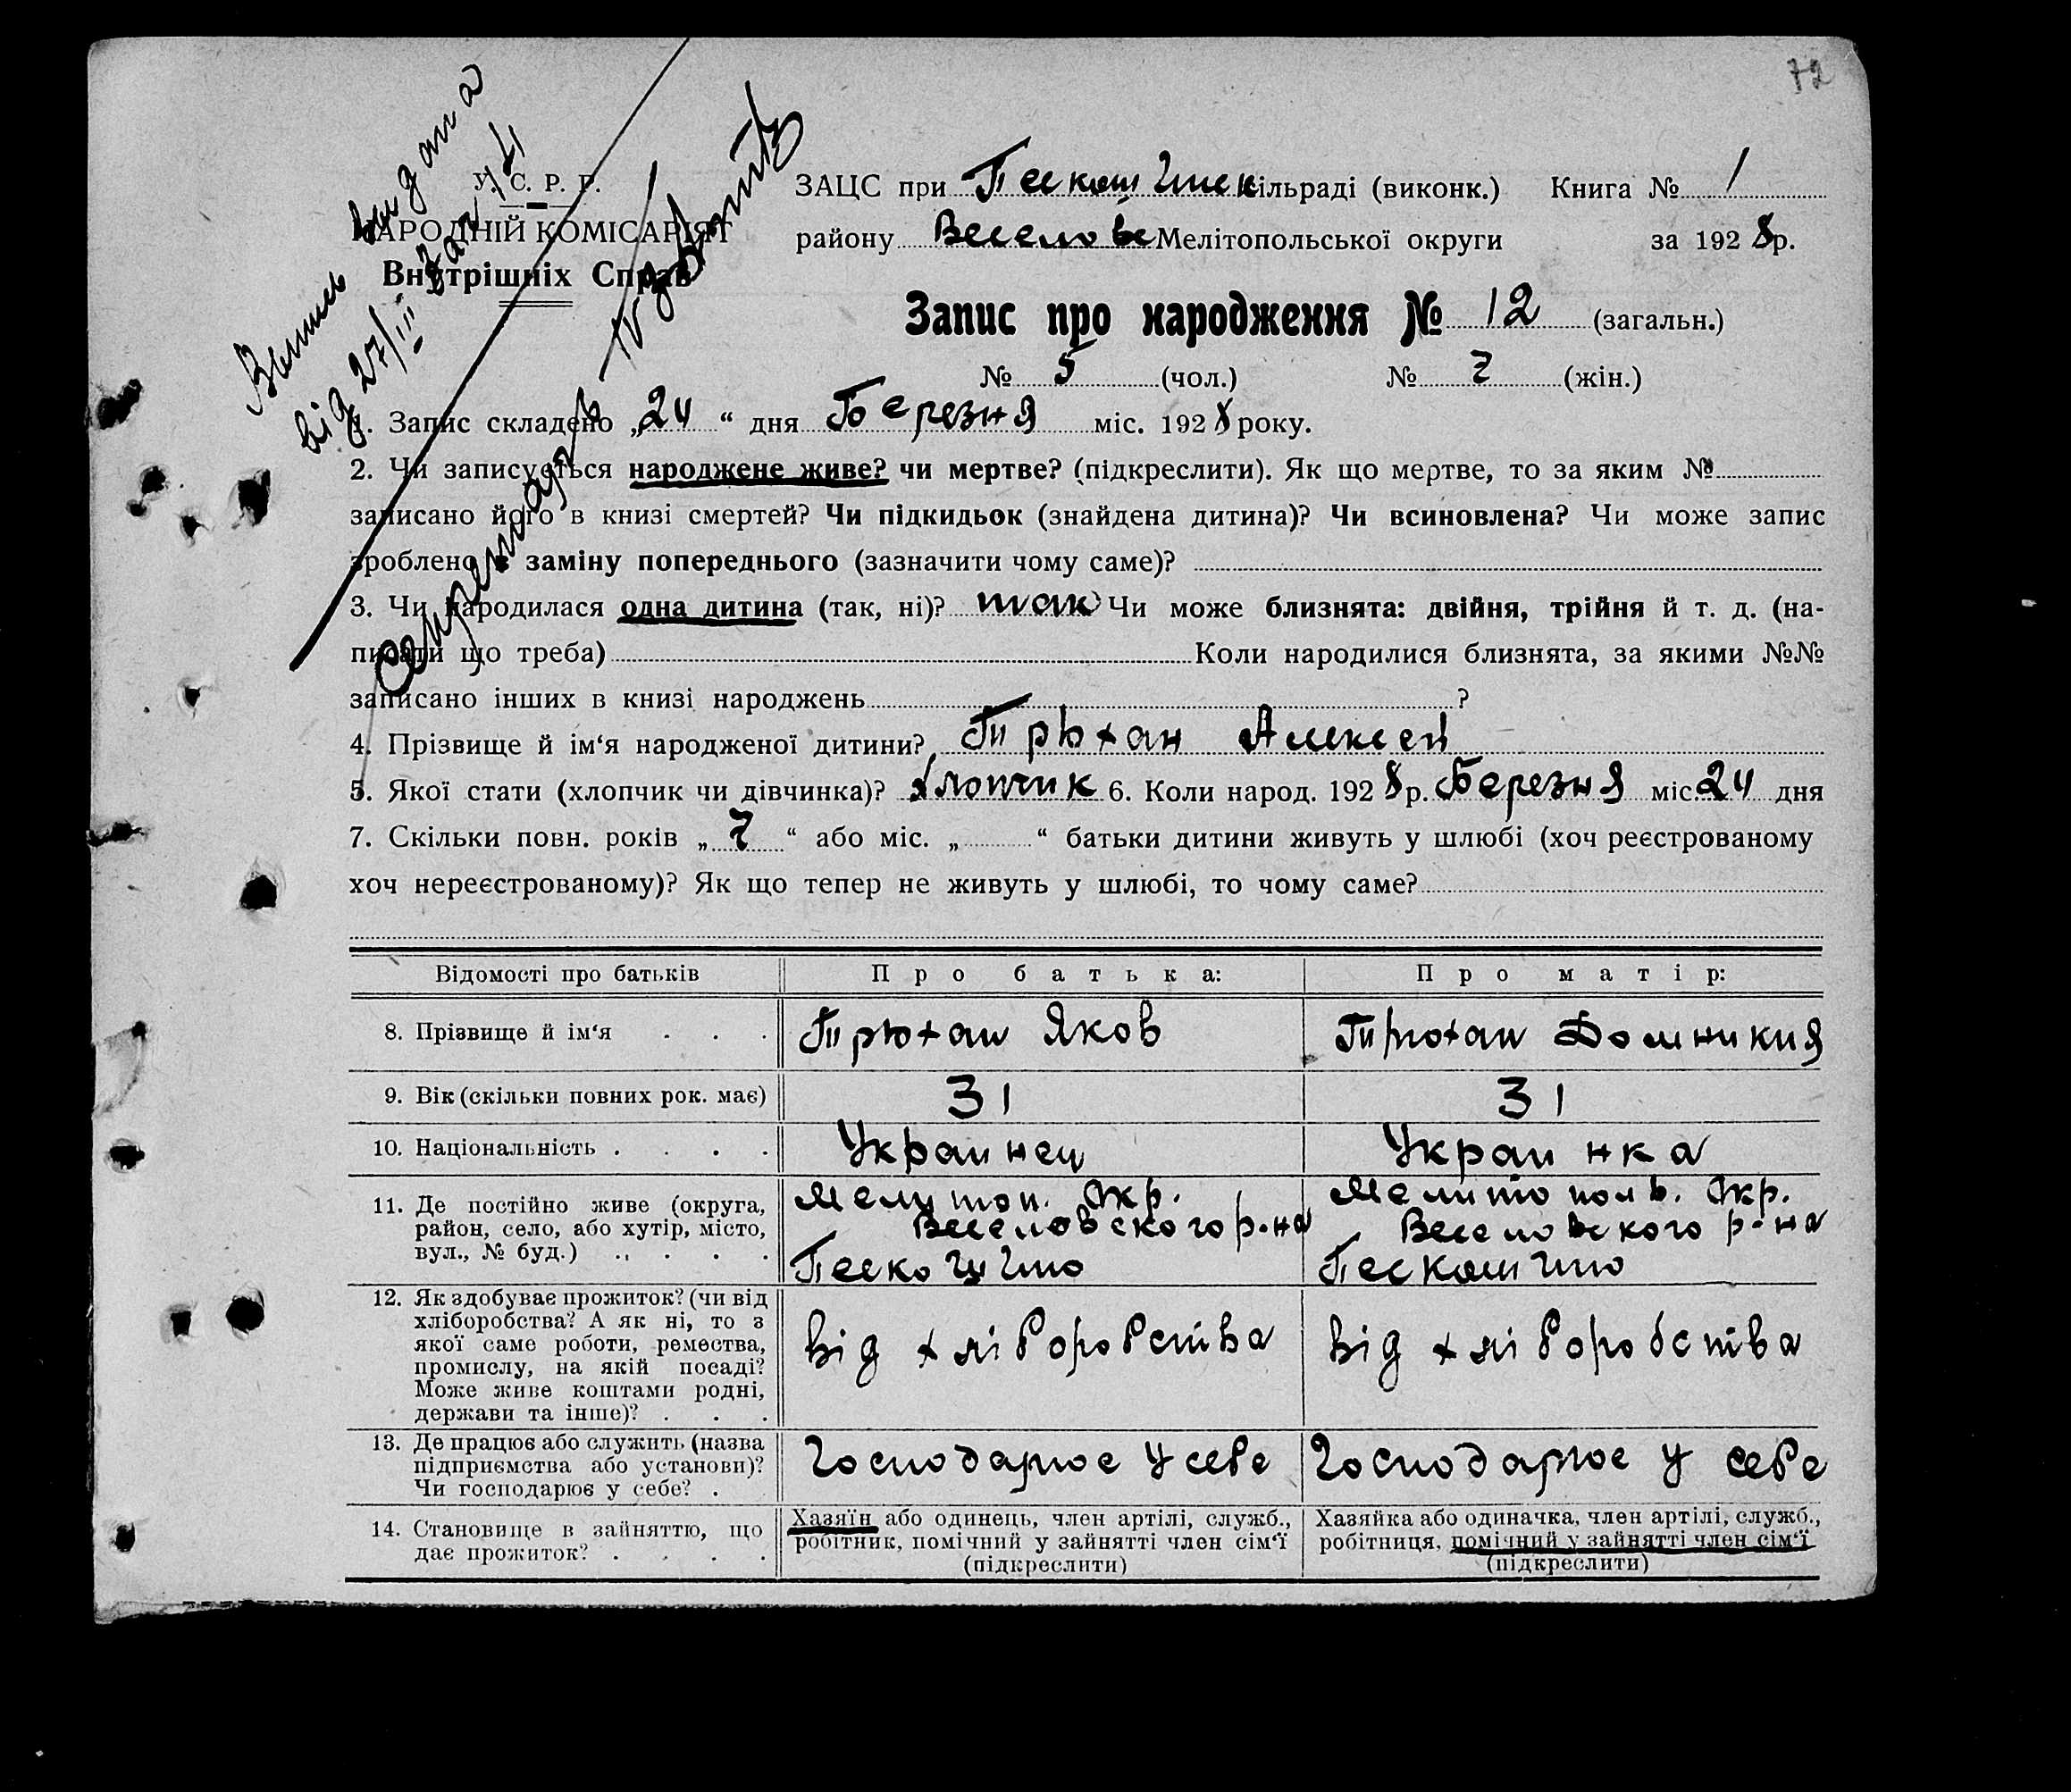 72
Випись видана
від 27/III за № 4
Секретарь
У. С. Р. Р.
НАРОДНІЙ КОМІСАРІЯТ
Внутрішніх Справ
ЗАЦС при Пескош сільраді (виконк.) Книга № 1
району Веселовс Мелітопольської округи за 1928р.
Запис про народження № 12 (загальн.)
№ 5 (чол.) № 7 (жін.)
1. Запис складено „24“ дня Березня міс. 1928 року.
2. Чи записується народжене живе? чи мертве? (підкреслити). Як що мертве, то за яким №
записано його в книзі смертей? Чи підкидьок (знайдена дитина)? Чи всиновлена? Чи може запис
зроблено в заміну попереднього (зазначити чому саме)?
3. Чи народилася одна дитина (так, ні)? так Чи може близнята: двійня, трійня й т. д. (на-
писати що треба) Коли народилися близнята, за якими №№
записано інших в книзі народжень ?
4. Прізвище й ім‘я народженої дитини? Тирюхан Алексей
5. Якої стати (хлопчик чи дівчинка)? хлопчик 6. Коли народ. 1928 р. Березня міс. 24 дня
7. Скільки повн. років „7“ або міс. „ “ батьки дитини живуть у шлюбі (хоч реєстрованому
хоч нереєстрованому)? Як що тепер не живуть у шлюбі, то чому саме?
Відомості про батьків Про батька: Про матір:
8. Прізвище й ім‘я . . . Тирюхан Яков Тирюхан Домникия
9. Вік (скільки повних рок. має) 31 31
10. Національність . . . . Украинец Украинка
11. Де постійно живе (округа, Мелитоп. Окр. Мелитополь. Окр.
район, село, або хутір, місто, Веселовского р-на Веселовского р-на
вул., № буд.) . . . . Пескошино Пескошино
12. Як здобуває прожиток? (чи від
хліборобства? А як ні, то з
якої саме роботи, ремества, від хліборобства від хліборобства
промислу, на якій посаді?
Може живе коштами родні,
держави та інше)? . . .
13. Де працює або служить (назва
підприємства або установи)? Господарює у себе Господарює у себе
Чи господарює у себе? .
14. Становище в зайняттю, що Хазяїн або одинець, член артілі, служб., Хазяйка або одиначка, член артілі, служб.,
дає прожиток? . . . . робітник, помічний у зайнятті член сім‘ї робітниця, помічний у зайнятті член сім‘ї
(підкреслити) (підкреслити)